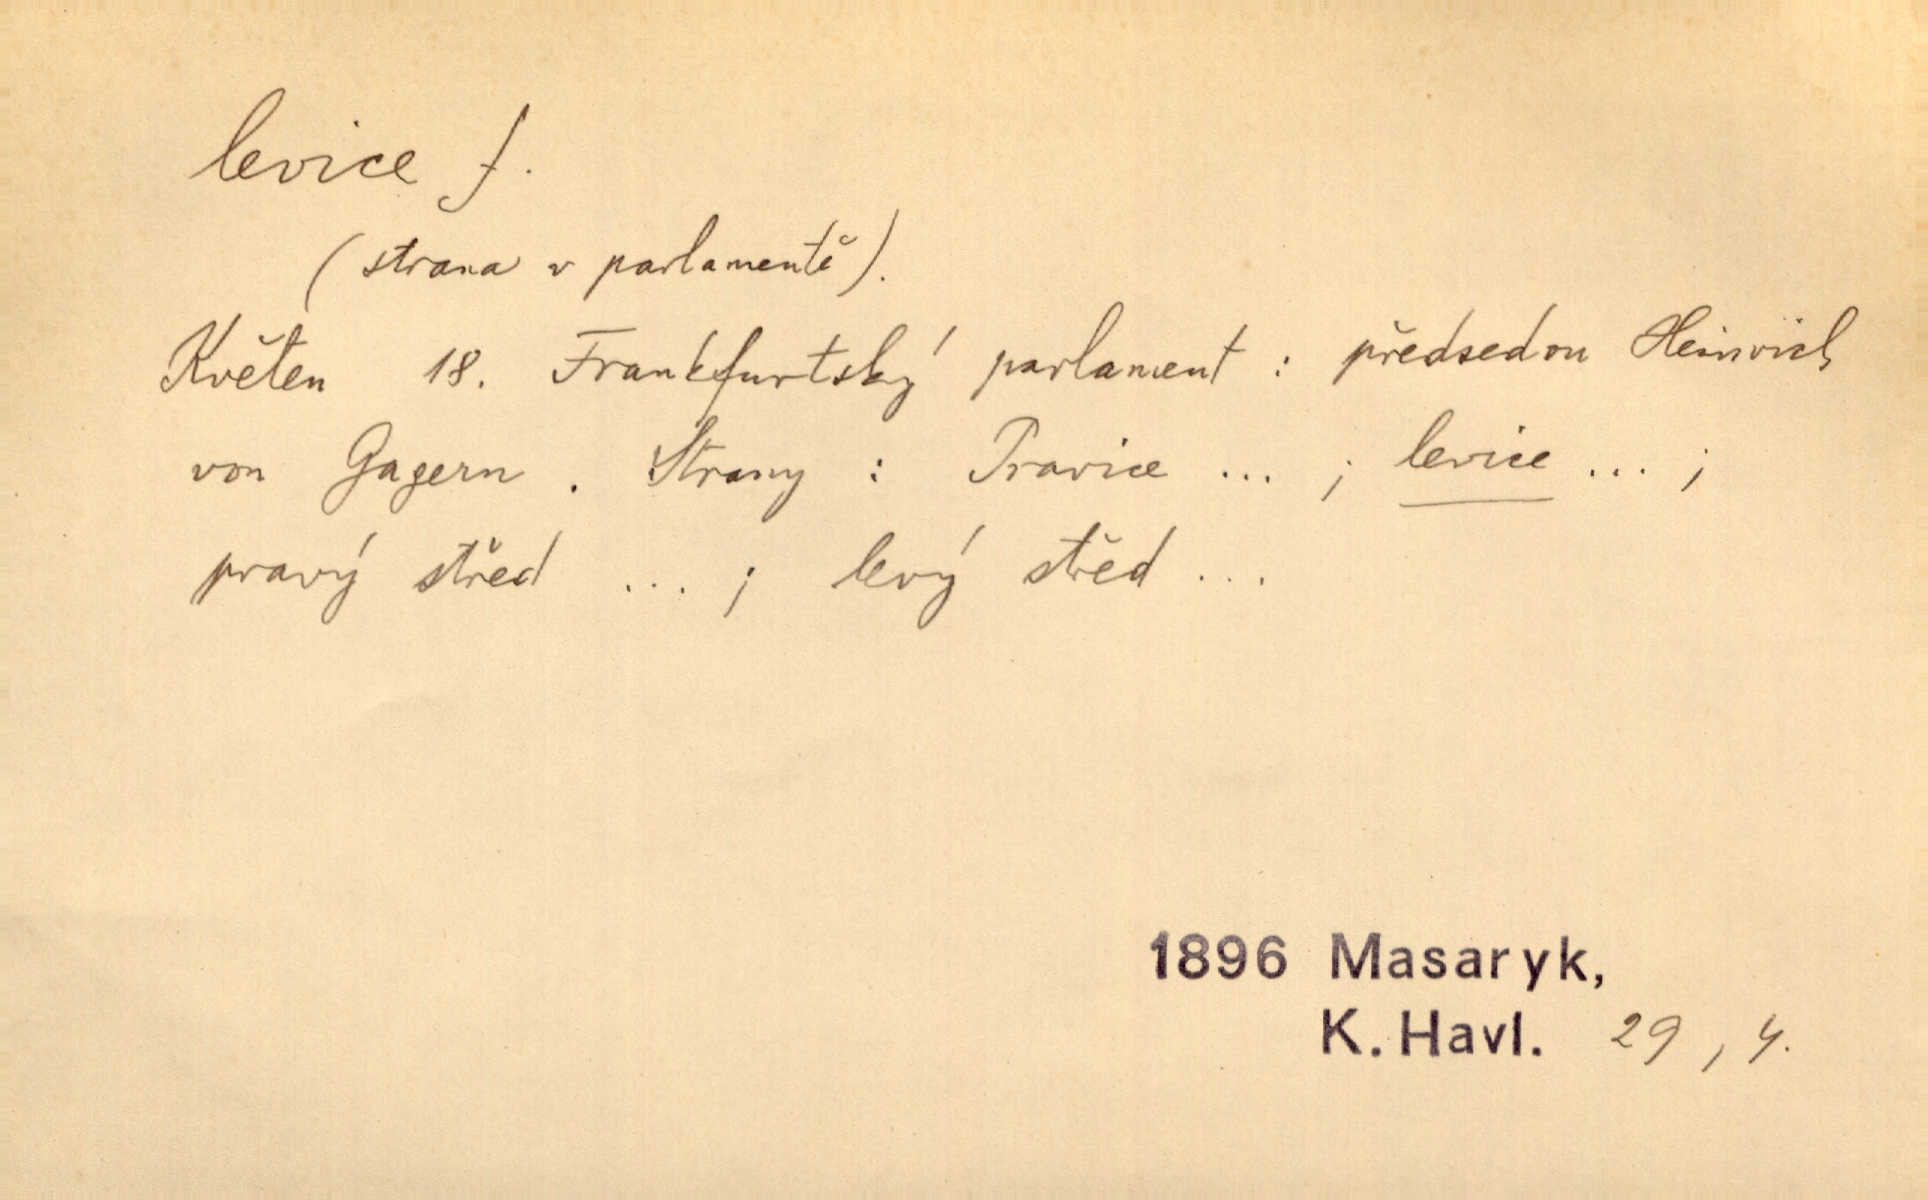 levice f.
(strana v parlamentě).
Květen 18. Frankfurtský parlament : předsedou Heinrich
von Gagern . Strany : Pravice ... ; levice ... ;
pravý střed ... ; levý střed ...
1896 Masaryk,
K. Havl. 29, 4.